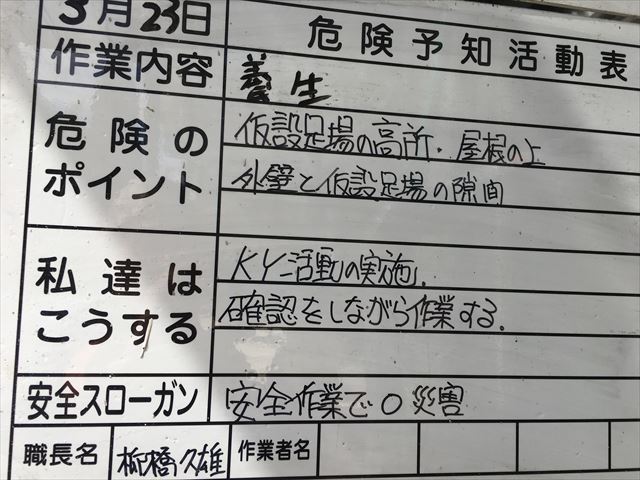 3月23日
危険予知活動表
作業内容
養生
危険の
ポイント
仮設足場の高所・屋根の上
外壁と仮設足場の隙間
私達は
こうする
KY活動の実施.
確認をしながら作業する.
安全スローガン
安全作業で0災害
職長名
柳橋久雄
作業者名